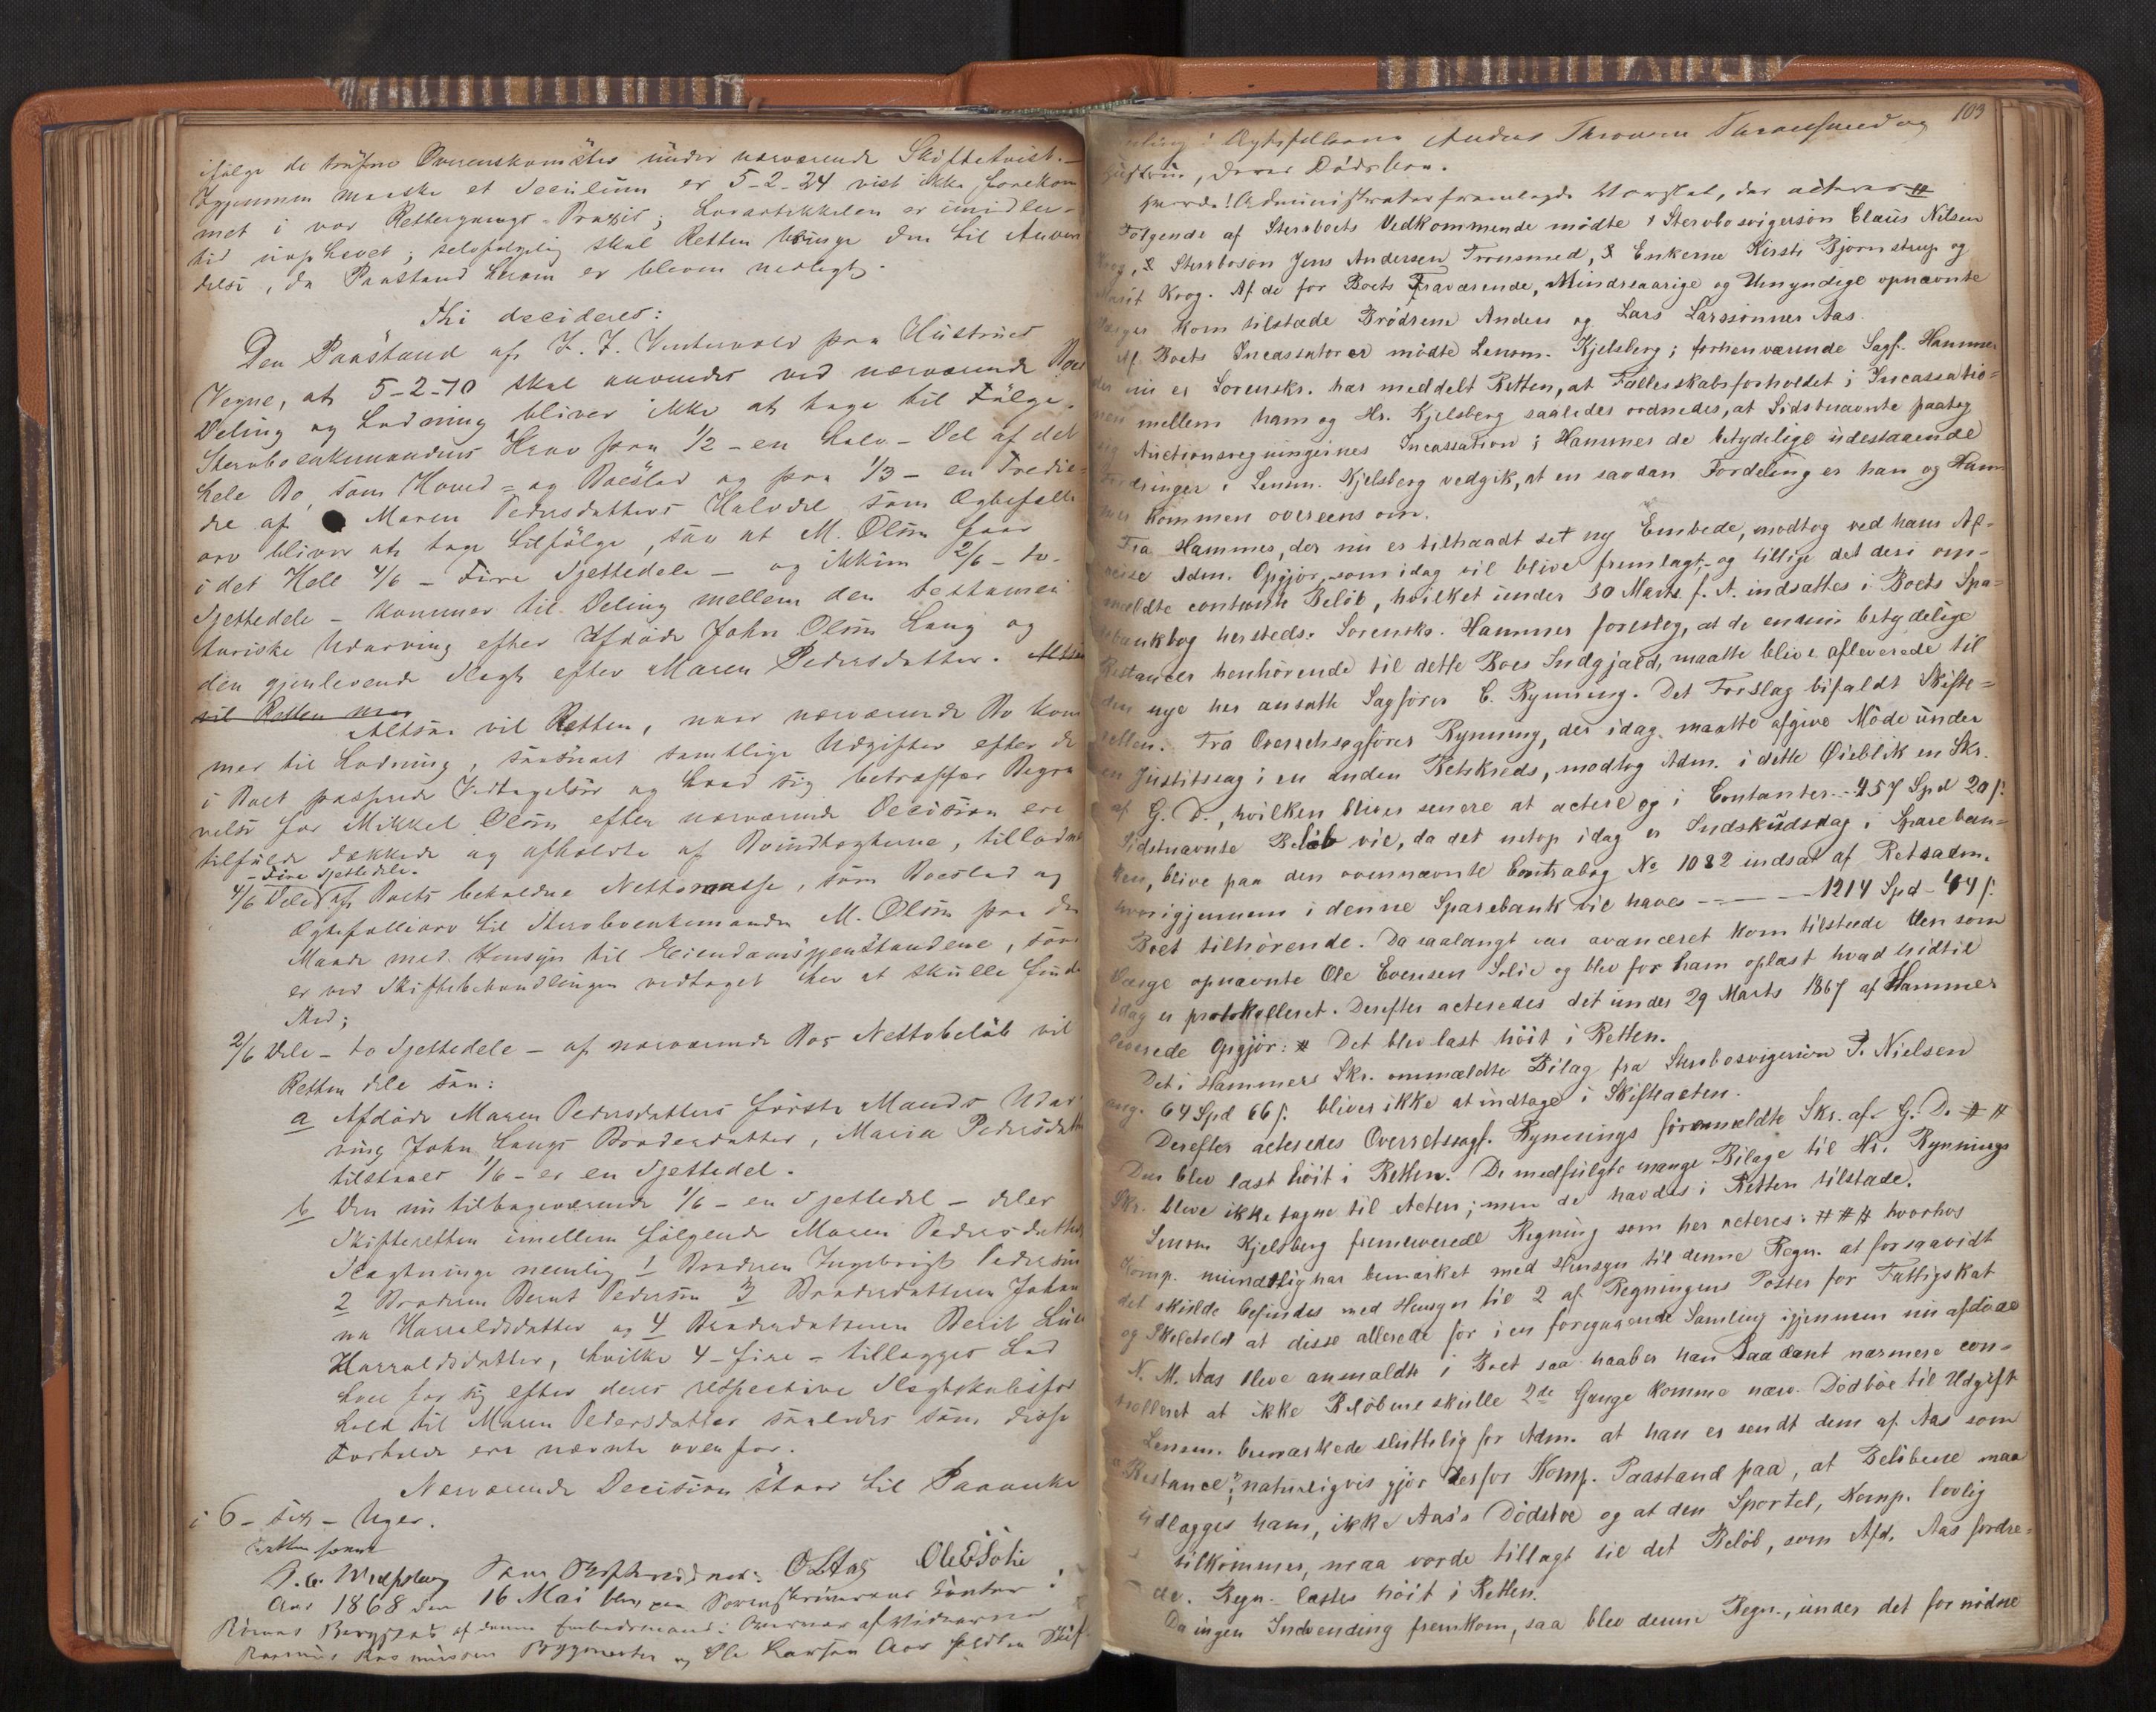 ifølge de trufne Overenskomster under nærværende Skiftetvist. –
Igjennem maaske et Seculum er 5-2-24 vist ikke forekom
met i vor Rettergangs-Praxis; Lovartikkelen er imidler-
tid uophævet; selvfølgelig skal Retten bringe den til Anven
delse, da Paastand herom er bleven nedlagt.
Thi decideres:
Den Paastand af I. I. Vintervold paa Hustrues
Vegne, at 5-2-70 skal anvendes ved nærværende Boes
Deling og Lodning bliver ikke at tage til Følge.
Stervboenkemandens Krav paa 1/2 - en halv - Del af det
hele Bo, som Hoved- og Boeslod og paa 1/3 - en Tredie-
del af Maren Pedersdatters Halvdel som Ægtefælle
arv bliver at tage tilfølge, saa at M. Olsen faar
i det Hele 4/6 - Fire Sjettedele - og ikkun 2/6 - to-
Sjettedele - kommer til Deling mellem den testamen
tariske Udarving efter Afdøde John Olsen Laug og
den gjenlevende Slægt efter Maren Pedersdatter. Altsaa
vil Retten naar
Altsaa vil Retten, naar nærværende Bo kom
mer til Lodning, saasnart samtlige Udgifter efter de
i Boet passerede Vedtagelser og hvad sig betræffer Begra
velse for Mikkel Olsen efter nærværende Decision ere
tilfulde dækkede og afholdte af Boindtægterne, tillodde
- Fire Sjettedele -
4/6 Dele af Boets beholdne Nettomasse, som Boeslod og
Ægtefællearv til Stervboenkemanden M. Olsen paa den
Maade med Hensyn til Eiendomsgjenstandene, som
er ved Skiftebehandlingen vedtaget her at skulle finde
Sted;
2/6 Dele - to Sjettedele - af nærværende Boes Nettobeløb vil
Retten dele saa:
a Afdøde Maren Pedersdatters første Mands Udar
ving John Laugs Broderdatter, Maria Pedersdatter
tilstaaes 1/6 - er en Sjettedel.
b Den nu tilbageværende 1/6 - en Sjettedel - deler
Skifteretten imellem følgende Maren Pedersdatters
Slægtninge nemlig 1 Broderen Ingebrigt Pedersen
2 Broderen Bernt Pedersen 3 Broderdatteren Johan
na Harraldsdatter og 4 Broderdatteren Berit
Harraldsdatter, hvilke 4 - fire - tillægges Lod
hver for sig efter deres respective Slægtskabsfor
hold til Maren Pedersdatter saaledes som disse
Forholde ere nævnte ovenfor.
Nærværende Decision staar til Paaanke
i 6 - sex - Uger.
Retten hævet
Som Skiftevidner: O L Aas Ole E Solie
Aar 1868 den 16 Mai blev paa Sorenskriverens Contor i
Røraas Bergstad af denne Embedsmand: Overvær af Vidnerne
Rasmus Rasmussen Bygmester og Ole Larsen Aas holdten Skif-
109
Ægtefolkene Anders Thronsen Thronsmed og
Hustru, deres Dødsboe.
Administrator fremlagde Storslat, der acteres #
Følgende af Stervboets Vedkommende mødte 1 Stervbosvigersøn Claus Nilsen
Krog, 2 Stervbosøn Jens Andersen Tronsmed, 3 Enkerne Kirsti Bjørnstrup og
Marit Krog. Af de for Boets Fraværende, Mindreaarige og Umyndige opnævnte
Værger kom tilstæde Brødrene Anders og Lars Larssønner Aas.
Af Boets Incassatorer mødte Lensm. Kjelsberg; forhenværende Sagf. Hammer
der nu er Sorenskr. har meddelt Retten, at Fællesskabsforholdet i Incassatio-
nen mellem ham og Hr. Kjelsberg saaledes ordnedes, at Sidstnævnte paatog
sig Auctionsregningernes Incassation; Hammer de betydelige udestaaende
Fordringer. Lensm. Kjelsberg vedgik, at en saadan Fordeling er han og Ham
mer kommen overeens om.
Fra Hammer, der nu er tiltraadt sit ny Embede, modtog ved hans Af-
reise Adm. Opgjør, som idag vil blive fremlagt, og tillige det deri om-
meldte contante Beløb, hvilket under 30 Marts f. A. indsattes i Boets Spa-
rebankbog hersteds. Sorenskr. Hammer foreslog, at de endnu betydelige
Restancer henhørende til dette Boes Indgjæld, maatte blive afleverede til
den nye her ansatte Sagfører C. Rynning. Det Forslag bifaldt Skifte-
retten. Fra Overretssagfører Rynning, der idag maatte afgive Møde under
en Justitssag i en anden Retskreds, modtog Adm. i dette Øieblik en Skr.
af G. D., hvilken bliver senere at actere og i Contanter - 457 Spd 20 ß.
Sidstnævnte Beløb vil, da det netop idag er Indskudsdag i Spareban-
ken, blive paa den ovennævnte Contrabog No 1082 indsat af Retsadm.
hvorigjennem i denne Sparebank vil haves - - - 1214 Spd 44 ß.
Boet tilhørende. Da saalangt var avanceret kom tilstæde den som
Værge opnævnte Ole Evensen Solie og blev for ham oplæst hvad hidtil
idag er protokolleret. Derefter acteredes det under 29 Marts 1867 af Hammer
leverede Opgjør: # Det blev læst høit i Retten.
Det i Hammers Skr. ommældte Bilag fra Stervbosvigersøn P. Nielsen
ang. 64 Spd 66 ß. bliver ikke at indtage i Skifteacten.
Derefter acteredes Overretssagf. Rynnings førommældte Skr. af G. D. # #
Den blev læst høit i Retten. De medfulgte mange Bilage til Hr. Rynnings
Skr. bleve ikke tagne til Acten; men de havdes i Retten tilstæde.
Lensm Kjelsberg fremleverede Regning som her acteres: # # # hvorhos
Komp. mundtlig har bemærket med Hensyn til denne Regn. at forsaavidt
det skulde befindes med Hensyn til 2 af Regningens Poster for Fattigskat
og Skolehold at disse allerede før i en foregaaende Samling igjennem nu afdøde
N. M. Aas bleve anmældte i Boet saa haaber han saadant nærmere con-
trolleret at ikke Beløbene skulle 2de Gange komme nærv. Dødboe til Udgift
Lensm. bemærkede sluttelig for Adm. at han er sendt dem af Aas som
"Restance", naturligvis gjør derfor Komp. Paastand paa, at Beløbene maa
udlægges ham, ikke Aas's Dødsboe og at den Sportel, Komp. lovlig
tilkommer, maa vorde tillagt til det Beløb, som Afd. Aas fordre-
de. Regn. læstes høit i Retten.
Da ingen Indvending fremkom, saa blev denne Regn., under det fornødne